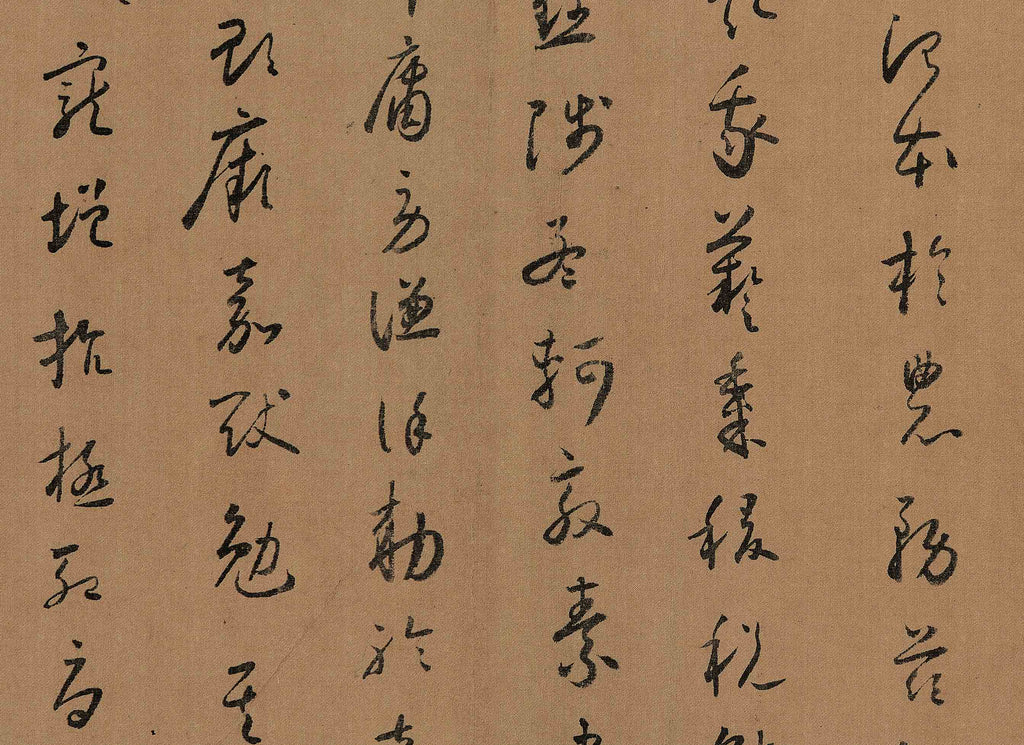 治本於農務茲
我藝黍稷稅
黜陟孟軻敦素
庸勞謙謹勅聆
貽厥嘉猷勉其
寵增抗極殆辱